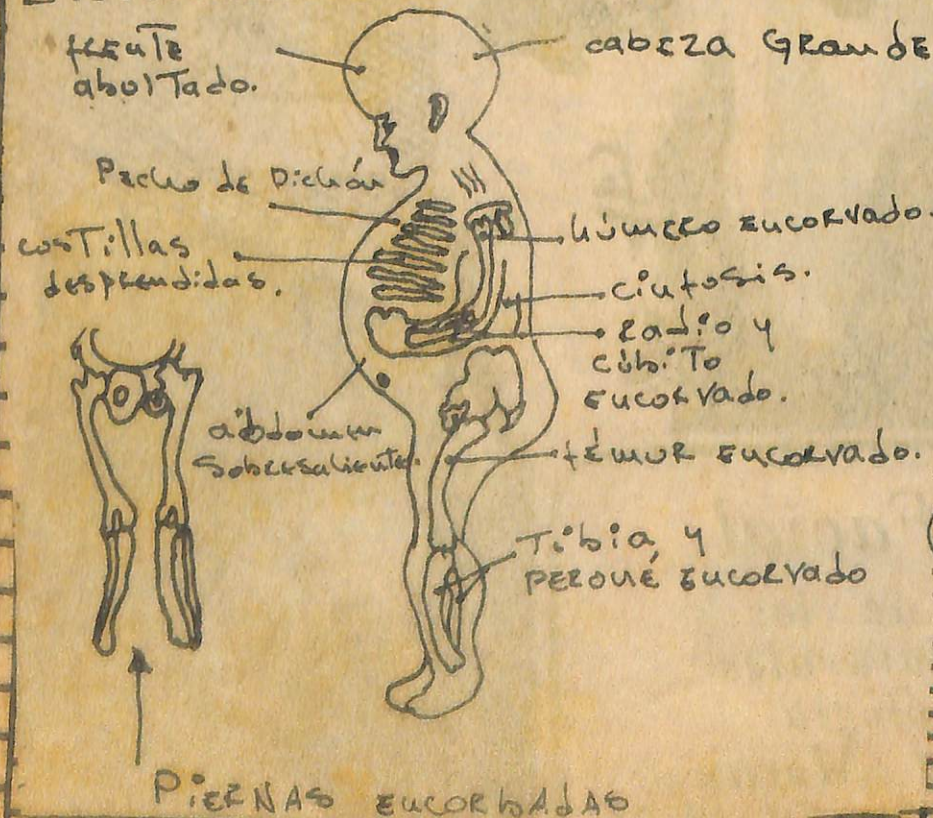 frente
abultado.
cabeza Grande
Pecho de Pichón
costillas
desprendidas.
húmero encorvado.
cifosis.
Radio y
cúbito
encorvado.
abdomen
sobresaliente.
fémur encorvado.
Tibia, y
PERONÉ encorvado
PIERNAS encorbadas